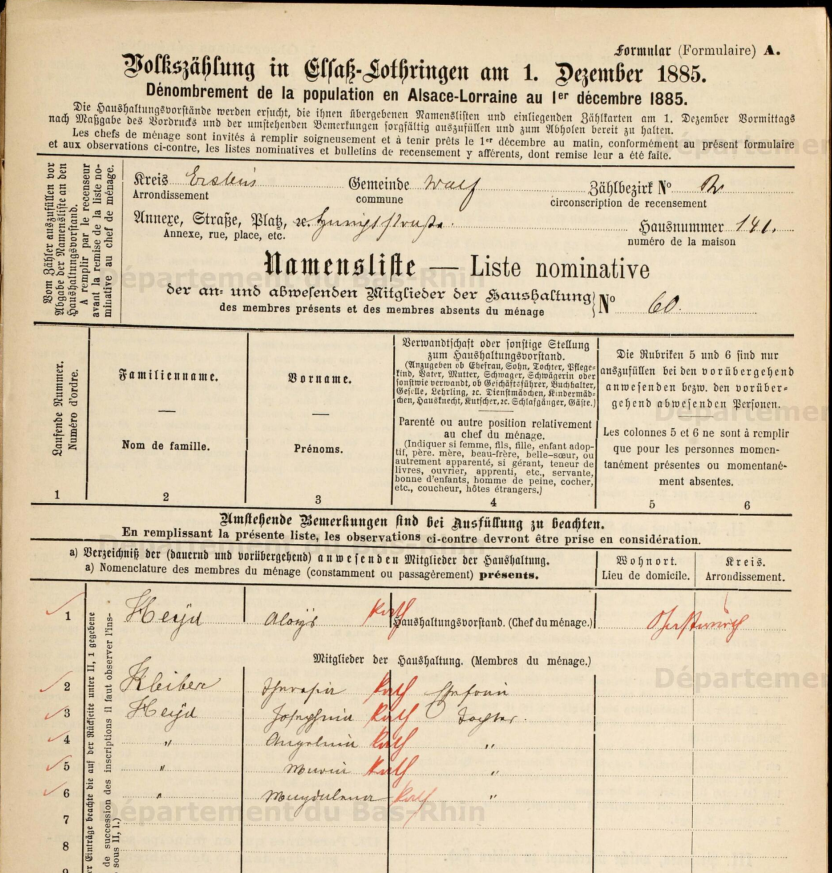 Formular (Formulaire) A.
Volkszählung in Elsaß-Lothringen am 1. Dezember 1885.
Dénombrement de la population en Alsace-Lorraine au 1er décembre 1885.
Die Haushaltungsvorstände werden ersucht, die ihnen übergebenen Namenslisten und einliegenden Zählkarten am 1. Dezember Vormittags
nach Maßgabe des Vordrucks und der umstehenden Bemerkungen sorgfältig auszufüllen und zum Abholen bereit zu halten.
Les chefs de ménage sont invités à remplir soigneusement et à tenir prêts le 1er décembre au matin, conformément au présent formulaire
et aux observations ci-contre, les listes nominatives et bulletins de recensement y afférents, dont remise leur a été faite.
Vom Zähler auszufüllen vor
Abgabe der Namensliste an den
Haushaltungsvorstand.
A remplir par le recenseur
avant la remise de la liste no-
minative au chef de ménage.
Kreis Erstein Gemeinde Walf Zählbezirk No 2
Arrondissement commune circonscription de recensement
Annexe, Straße, Platz, ꝛc. Hausnummer 141.
Annexe, rue, place, etc. numéro de la maison
Namensliste — Liste nominative
der an- und abwesenden Mitglieder der Haushaltung} No 60.
des membres présents et des membres absents du ménage
Laufende Nummer.
Numéro d'ordre.
1
Familienname.
Nom de famille.
2
Vorname.
Prénoms.
3
Verwandtschaft oder sonstige Stellung
zum Haushaltungsvorstand.
(Anzugeben ob Ehefrau, Sohn, Tochter, Pflege-
kind, Vater, Mutter, Schwager, Schwägerin oder
sonstwie verwandt, ob Geschäftsführer, Buchhalter,
Geselle, Lehrling, ꝛc. Dienstmädchen, Kindermäd-
chen, Hausknecht, Kutscher, ꝛc. Schlafgänger, Gäste.)
Parenté ou autre position relativement
au chef du ménage.
(Indiquer si femme, fils, fille, enfant adop-
tif, père, mère, beau-frère, belle-sœur, ou
autrement apparenté, si gérant, teneur de
livres, ouvrier, apprenti, etc., servante,
bonne d'enfants, homme de peine, cocher,
etc., coucheur, hôtes étrangers.)
4
Die Rubriken 5 und 6 sind nur
auszufüllen bei den vorübergehend
anwesenden bezw. den vorüber-
gehend abwesenden Personen.
Les colonnes 5 et 6 ne sont à remplir
que pour les personnes momen-
tanément présentes ou momentané-
ment absentes.
5 6
Umstehende Bemerkungen sind bei Ausfüllung zu beachten.
En remplissant la présente liste, les observations ci-contre devront être prise en considération.
a) Verzeichniß der (dauernd und vorübergehend) anwesenden Mitglieder der Haushaltung.
a) Nomenclature des membres du ménage (constamment ou passagèrement) présents.
Wohnort.
Lieu de domicile.
Kreis.
Arrondissement.
Einträge beachte die auf der Rückseite unter II, 1 gegebene
de succession des inscriptions il faut observer l'ins-
sous II, 1.)
1 Heyd Aloÿs kath Haushaltungsvorstand. (Chef du ménage.)
Mitglieder der Haushaltung. (Membres du ménage.)
2 Kleiber Theresia kath Ehefrau
3 Heyd Josephina kath Tochter.
4 " Angelina kath "
5 " Maria kath "
6 " Magdalena kath "
7
8
Département du Bas-Rhin